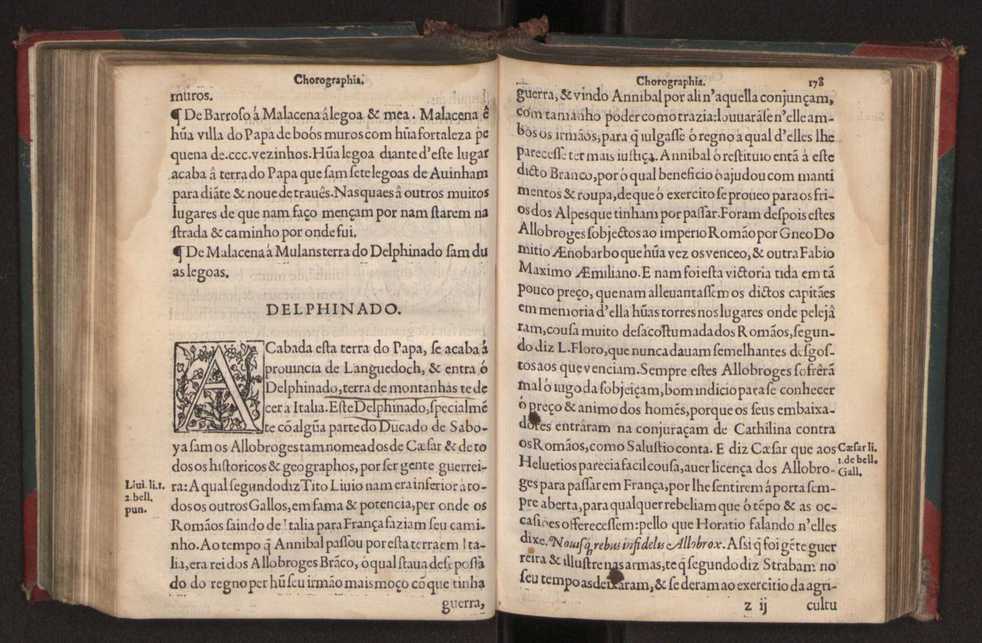 Chorographia.
muros.
¶ De Barroso á Malacena á legoa & mea. Malacena ê
hũa villa do Papa de boõs muros com hũa fortaleza pe
quena de.ccc.vezinhos. Hũa legoa diante d'este lugar
acaba â terra do Papa que sam sete legoas de Auinham
para diãte & noue de traués. Nas quaes â outros muitos
lugares de que nam faço mençam por nam starem na
strada & caminho por onde fui.
¶ De Malacena á Mulans terra do Delphinado sam du
as legoas.
DELPHINADO.
ACabada esta terra do Papa, se acaba á
prouincia de Languedoch, & entra ó
Delphinado, terra de montanhas te de
cer a Italia. Este Delphinado, specialmẽ
te cõ algũa parte do Ducado de Sabo-
ya sam os Allobroges tam nomeados de Cæsar & de to
dos os historicos & geographos, por ser gente guerrei-
ra: A qual segundo diz Tito Liuio nam era inferior à to-
dos os outros Gallos, em fama & potencia, per onde os
Romãos saindo de Italia para França faziam seu cami-
nho. Ao tempo q̃ Annibal passou por esta terra em Ita-
lia, era rei dos Allobroges Brãco, ó qual staua desepossã
do do regno per hũ seu irmão mais moço cõ que tinha
guerra,
Liui. li. 1.
2. bell.
pun.
Chorographia.
178
guerra, & vindo Annibal por ali n'aquella conjunçam,
com tamanho póder como trazia: louuarã se n'elle am-
bos os irmãos, para q̃ iulgasse ó regno a qual d'elles lhe
parecesse ter mais iustiça. Annibal ó restituio entã á este
dicto Branco, por ó qual beneficio ó ajudou com manti
mentos & roupa, de que ó exercito se proueo para os fri-
os dos Alpes que tinham por passar. Foram despois estes
Allobroges sobjectos ao imperio Romão por Gneo Do
mitio Ænobarbo que hũa vez os venceo, & outra Fabio
Maximo Æmiliano. E nam foi esta victoria tida em tã
pouco preço, que nam alleuantassem os dictos capitães
em memoria d'ella hũas torres nos lugares onde pelejâ
ram, cousa muito desacostumada dos Romãos, segun-
do diz L. Floro, que nunca dauam semelhantes desgos-
tos aos que venciam. Sempre estes Allobroges sofrérã
mal ó iugo da sobjeiçam, bom indicio para se conhecer
ó preço & animo dos homẽs, porque os seus embaixa-
dores entráram na conjuraçam de Cathilina contra
os Romãos, como Salustio conta. E diz Cæsar que aos
Heluetios parecia facil cousa, auer licença dos Allobro-
ges para passar em França, por lhe sentirem á porta sem-
pre aberta, para qualquer rebeliam que ó tẽpo & as oc-
casiões offerecessem: pello que Horatio falando n'elles
dixe. Nouisq̃ rebus infidelis Allobrox. Assi q̃ foi gẽte guer
reira & illustre nas armas, te q̃ segundo diz Strabam no
seu tempo as deixaram, & se deram ao exercitio da agri-
z ij
cultu
Cæsar li.
1. de bell.
Gall.